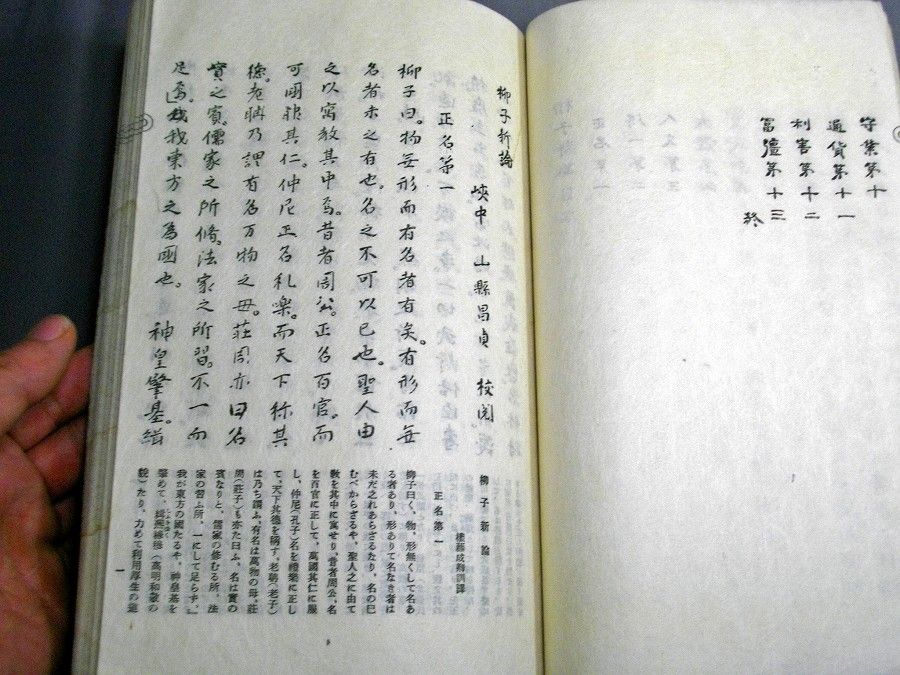 守業第十
通貨第十一
利害第十二
富彊第十三
終
柳子新論　峽中　山縣昌貞　校閲
正名第一
柳子曰。物無形而有名者有矣。有形而無
名者未之有也。名之不可以已也。聖人由
之以寓教其中焉。昔者周公。正名百官。而
万国服其仁。仲尼正名礼楽。而天下称其
徳。老聃乃謂有名万物之母。荘周亦曰名
實之賓。儒家之所脩。法家之所習。不一而
足焉。我東方之為國也。神皇肇基。緝
柳子新論
成 訓譯
正名第一
柳子曰く、物、形無くして名あ
る者あり、形ありて名なき者は
未だ之れあらざるなり、名の已
むべからざるや、聖人之に由て
敎を其中に寓せり、昔者周公、名
を百官に正して、萬國其仁に服
し、仲尼(孔子)名を禮樂に正し
て、天下其德を稱す、老聃(老子)
は乃ち謂ふ、有名は萬物の母、莊
周(莊子)も亦た曰ふ、名は實の
賓なりと、儒家の修むる所、法
家の習ふ所、一にして足らず、
我が東方の國たるや、神皇基を
肇めて、緝熙穆穆(高明和敬の
貌)たり、力めて利用厚生の道
一